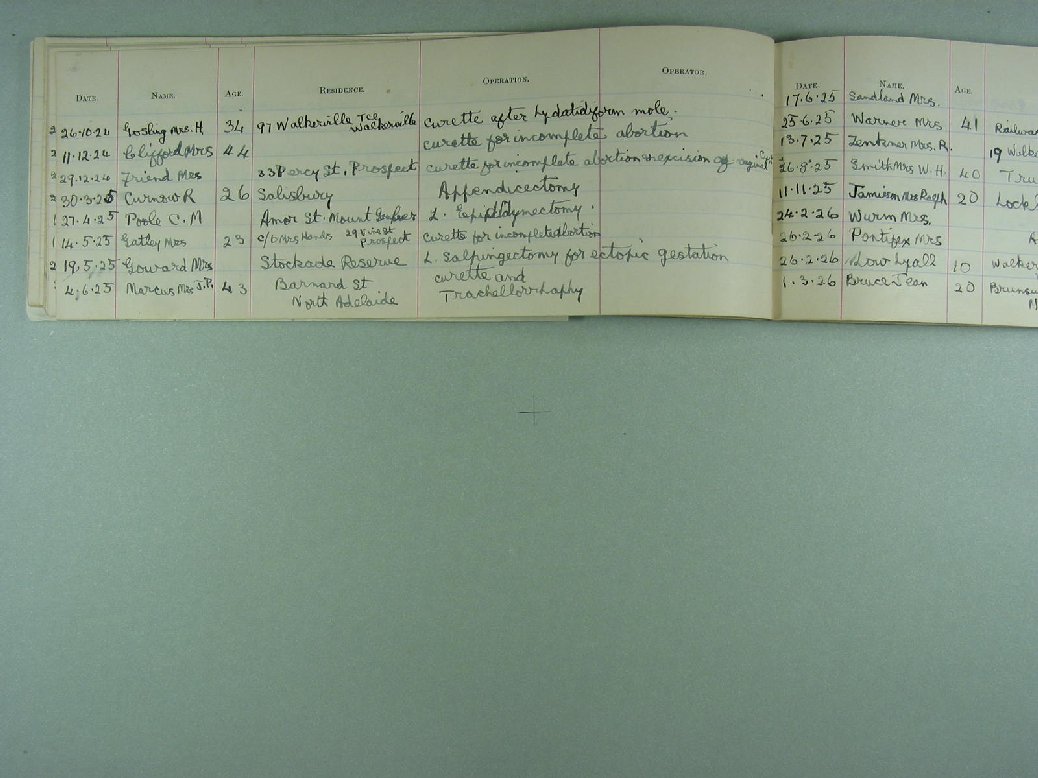 DATE. NAME. AGE RESIDENCE. OPERATION. OPERATOR.
26.10.24 Gosling Mrs. H 34 97 Walkerville Tce Walkerville Curette after hydatidyform mole.
11.12.24 Clifford Mrs 44 curette for incomplete abortion
29.12.24 Friend Mrs 33 Percy St, Prospect curette for incomplete abortion & excision of
30.3.25 Curnow R 26 Salisbury Appendicectomy
27.4.25 Poole C. M Amor St. Mount L. Epididymectomy.
14.5.25 Gatley Mrs 23 c/o Mrs Hands 29 Vine St Prospect curette for incomplete abortion
19.5.25 Goward Mrs Stockade Reserve L. Salpingectomy for ectopic gestation
4.6.25 Marcus Mrs J.P. 43 Barnard St curette and
North Adelaide Trachellorrhaphy
DATE NAME. AGE.
17.6.25 Sandland Mrs.
25.6.25 Warner Mrs 41 Railway
13.7.25 Zentener Mrs. R. 19 Walke
26.8.25 Smith Mrs W. H. 40 Tru
11.11.25 Jamieson Mrs Ralph 20 Lock
24.2.26 Wurm Mrs.
26.2.26 Pontifex Mrs
26.2.26 Lyall 10 Walker
1.3.26 Bruce Jean 20 Brunsw